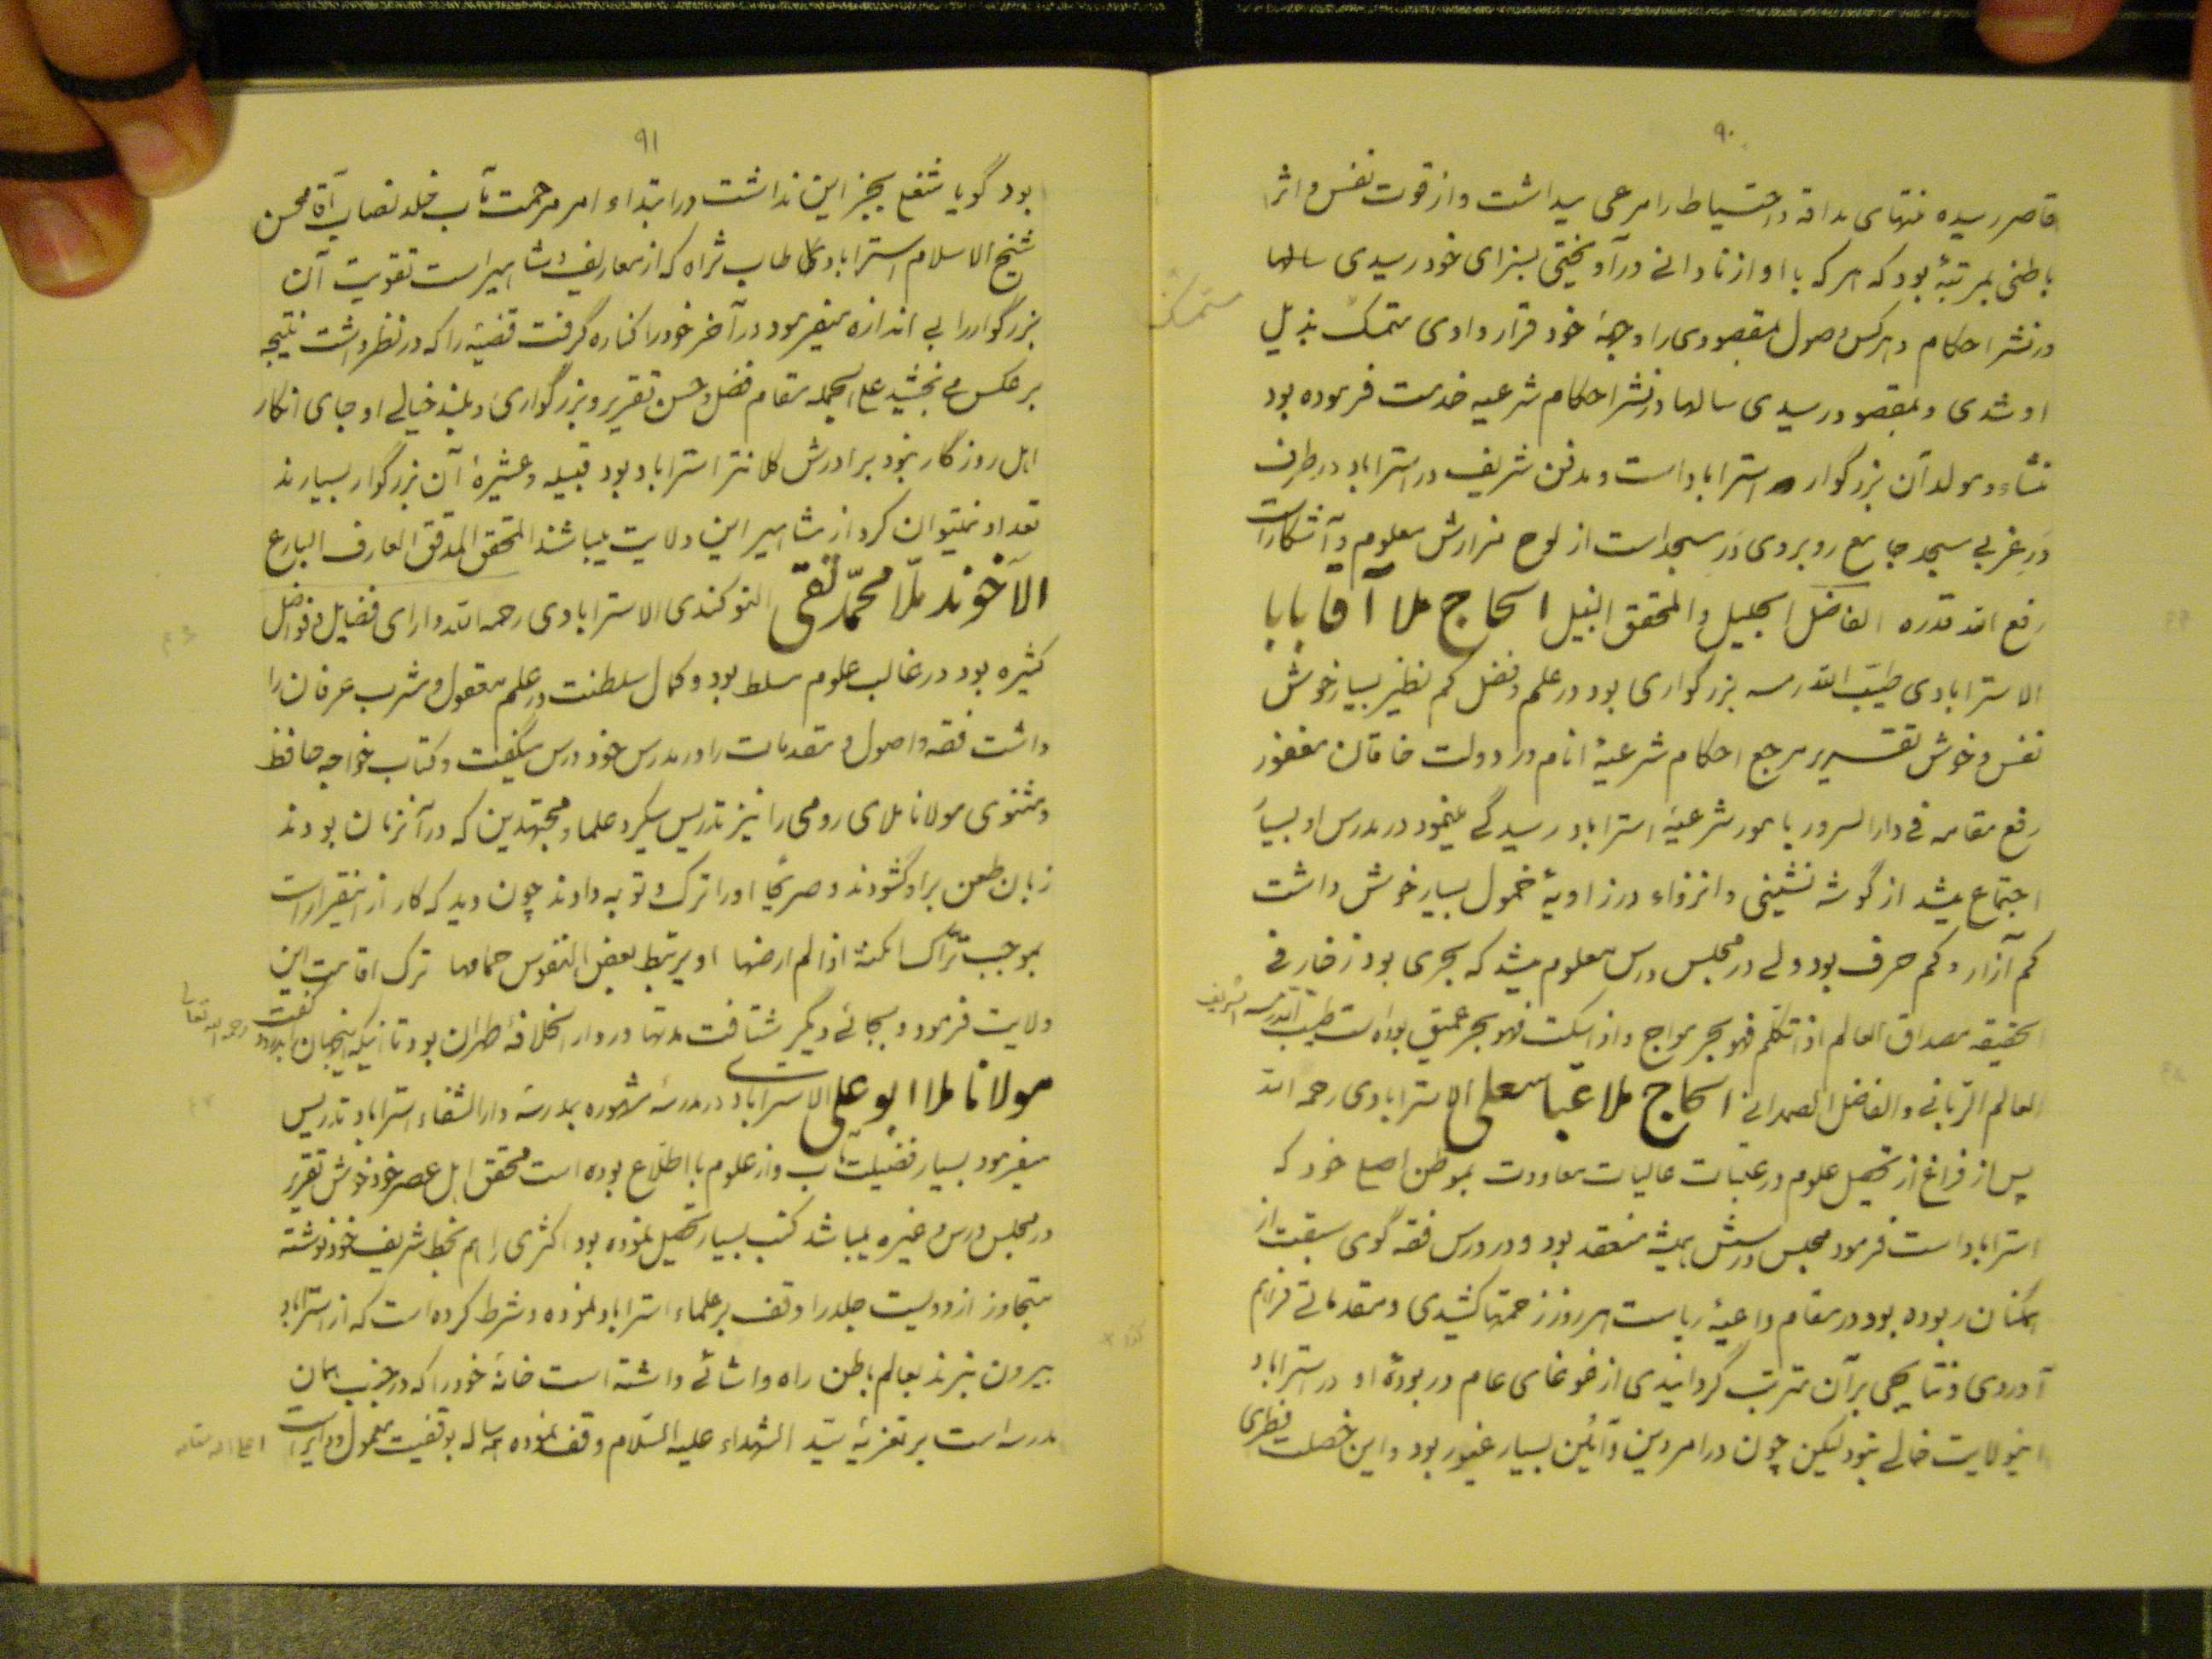 ۹۰
قاصر رسیده منتهای مداقه و احتیاط را مرعی میداشت و از قوت نفس و اثر
باطنی بمرتبهٔ بود که هر که با او از نادانی در آویختی بسزای خود رسیدی سالها
در نشر احکام و هر کس وصول بمقصودی را وجههٔ خود قرار دادی متمسک بذیل
متمسک
او شدی و بمقصود رسیدی سالها در نشر احکام شرعیه خدمت فرموده بود
منشاء و مولد آن بزرگوار استراباد است و مدفن شریف در استراباد در طرف
در غربی مسجد جامع روبروی در مسجد است از لوح مزارش معلوم و آشکار است
رفع الله قدره الفاضل الجلیل و المحقق النبیل الحاج ملا آقا بابا
الاسترابادی طیب الله رمسه بزرگواری بود در علم و فضل کم نظیر بسیار خوش
نفس و خوش تقریر مرجع احکام شرعیهٔ انام در دولت خاقان مغفور
رفع مقامه فی دار السرور بامور شرعیهٔ استراباد رسیدگی مینمود در مدرس او بسیار
اجتماع میشد از گوشه نشینی و انزواء در زاویهٔ خمول بسیار خوش داشت
کم آزار و کم حرف بود ولی در مجلس درس معلوم میشد که بحری بود زخار فی
الحقیقه مصداق العالم اذا تکلم فهو بحر مواج و اذا سکت فهو بحر عمیق بوده است طیب الله رمسه الشریف
العالم الربانی و الفاضل الصمدانی الحاج ملا عباسعلی الاسترابادی رحمه الله
پس از فراغ از تحصیل علوم در عتبات عالیات معاودت بموطن اصلی خود که
استراباد است فرمود مجلس درسش همیشه منعقد بود و در درس فقه گوی سبقت از
همگنان ربوده بود در مقام داعیهٔ ریاست هر روزه زحمتها کشیدی و مقدماتی فراهم
آوردی و نتایجی بر آن مترتب گردانیدی از غوغای عام در بودهٔ او در استراباد
اینولایت خالی نبود لیکن چون در امر دین و آئین بسیار غیور بود و این خصلت فطری
۹۱
بود گویا شفع بجز این نداشت در ابتداء امر مرحمت مآب خلد نصاب آقا محسن
شیخ الاسلام استرابادی طاب ثراه که از معاریف و مشاهیر است تقویت آن
بزرگوار را بی اندازه میفرمود در آخر خود را کناره گرفت قضیه را که در نظر داشت نتیجه
بر عکس می بخشید علی الجمله مقام فضل و حسن تقریر و بزرگواری و بلند خیالی او جای انکار
اهل روزگار نبود برادرش کلانتر استراباد بود قبیله و عشیرهٔ آن بزرگوار بسیارند
تعداد نمیتوان کرد از مشاهیر این ولایت میباشند المحقق المدقق العارف البارع
الآخوند ملا محمد تقی النوکندی الاسترابادی رحمه الله دارای فضایل و فواضل
کثیره بود در غالب علوم مسلط بود و کمال سلطنت در علم معقول و مشرب عرفان را
داشت فقه و اصول و مقدمات را در مدرس خود درس میگفت و کتاب خواجه حافظ
و مثنوی مولانا ملای رومی را نیز تدریس میکرد علماء و مجتهدین که در آنزمان بودند
زبان طعن بر او گشودند و صریحاً او را ترک و توبه دادند چون دید که کار از اینقرار است
بموجب تراک امکنة اذا لم ارضها او یرتبط بعض النفوس حمامها ترک اقامت این
ولایت فرمود و بجائی دیگر شتافت مدتها در دار الخلافهٔ طهران بود تا اینکه اینجهان را بدرود گفت رحمه الله تعالی
مولانا ملا ابو علی الاسترابادی در مدرسهٔ مشهوره بمدرسه دار الشفاء استراباد تدریس
میفرمود بسیار فضیلت مآب و از علوم با اطلاع بوده است محقق اهل عصر خود خوش تقریر
در مجلس درس و غیره میباشد کتب بسیار تحصیل نموده بود اکثری را هم بخط شریف خود نوشته
متجاوز از دویست جلد را وقف بر علماء استراباد نموده و شرط کرده است که از استراباد
بیرون نبرند بعالم باطن راه و اشائی داشته است خانهٔ خود را که در جنب همان
مدرسه است بر تعزیهٔ سید الشهداء علیه السلام وقف نموده همه ساله بوقفیت معمول و دایر است اعلی الله مقامه